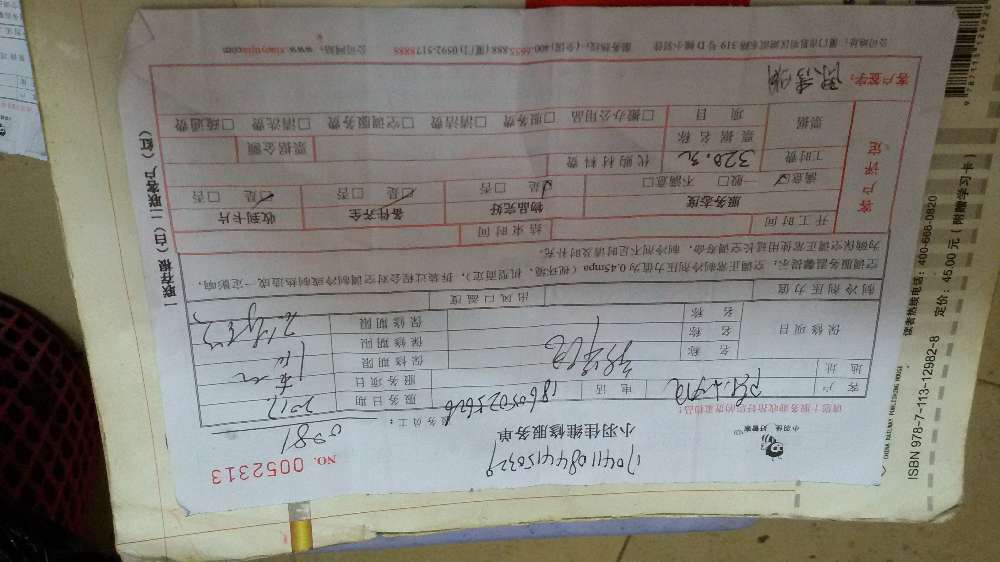 1704110844150329
小羽佳维修服务单
NO. 0052313
小羽佳 好管家
请您主动验收
服务员工: 0981
客户 电话 18605025626 服务日期 2017.
地址 服务项目
保修项目 名称 保修期限
名称 保修期限
名称 保修期限
制冷剂压力值 出风口温度
空调服务温馨提示: 空调正常制冷剂压力值为0.45mpa (视环境、机型而定), 拆装过程会对空调制冷或制热造成一定影响,
为确保空调正常使用延长空调寿命, 制冷剂不足时请及时补充。
客户评定
开工时间 结束时间
服务态度 物品完好 备件齐全 收到卡片
满意☑ 一般□ 不满意□ ☑是 □否 ☑是 □否 ☑是 □否
工时费 320.元 代购材料费
票据 票据名称 票据金额
项目 □搬办公用品 □服务费 □清洁费 □空调服务费 □清洗费 □疏通费
客户签字:
一联存根(白)二联客户(红)
公司地址: 厦门市思明区湖滨东路319号D幢小羽佳 服务热线: (全国)400-6655-888 (厦门) 0592-5178885 公司网站: www.xiaoyujia.com
CHINA RAILWAY PUBLISHING HOUSE
读者热线电话: 400-668-0820
ISBN 978-7-113-12982-8 定价: 45.00元 (附赠学习卡)
9 787113 129828